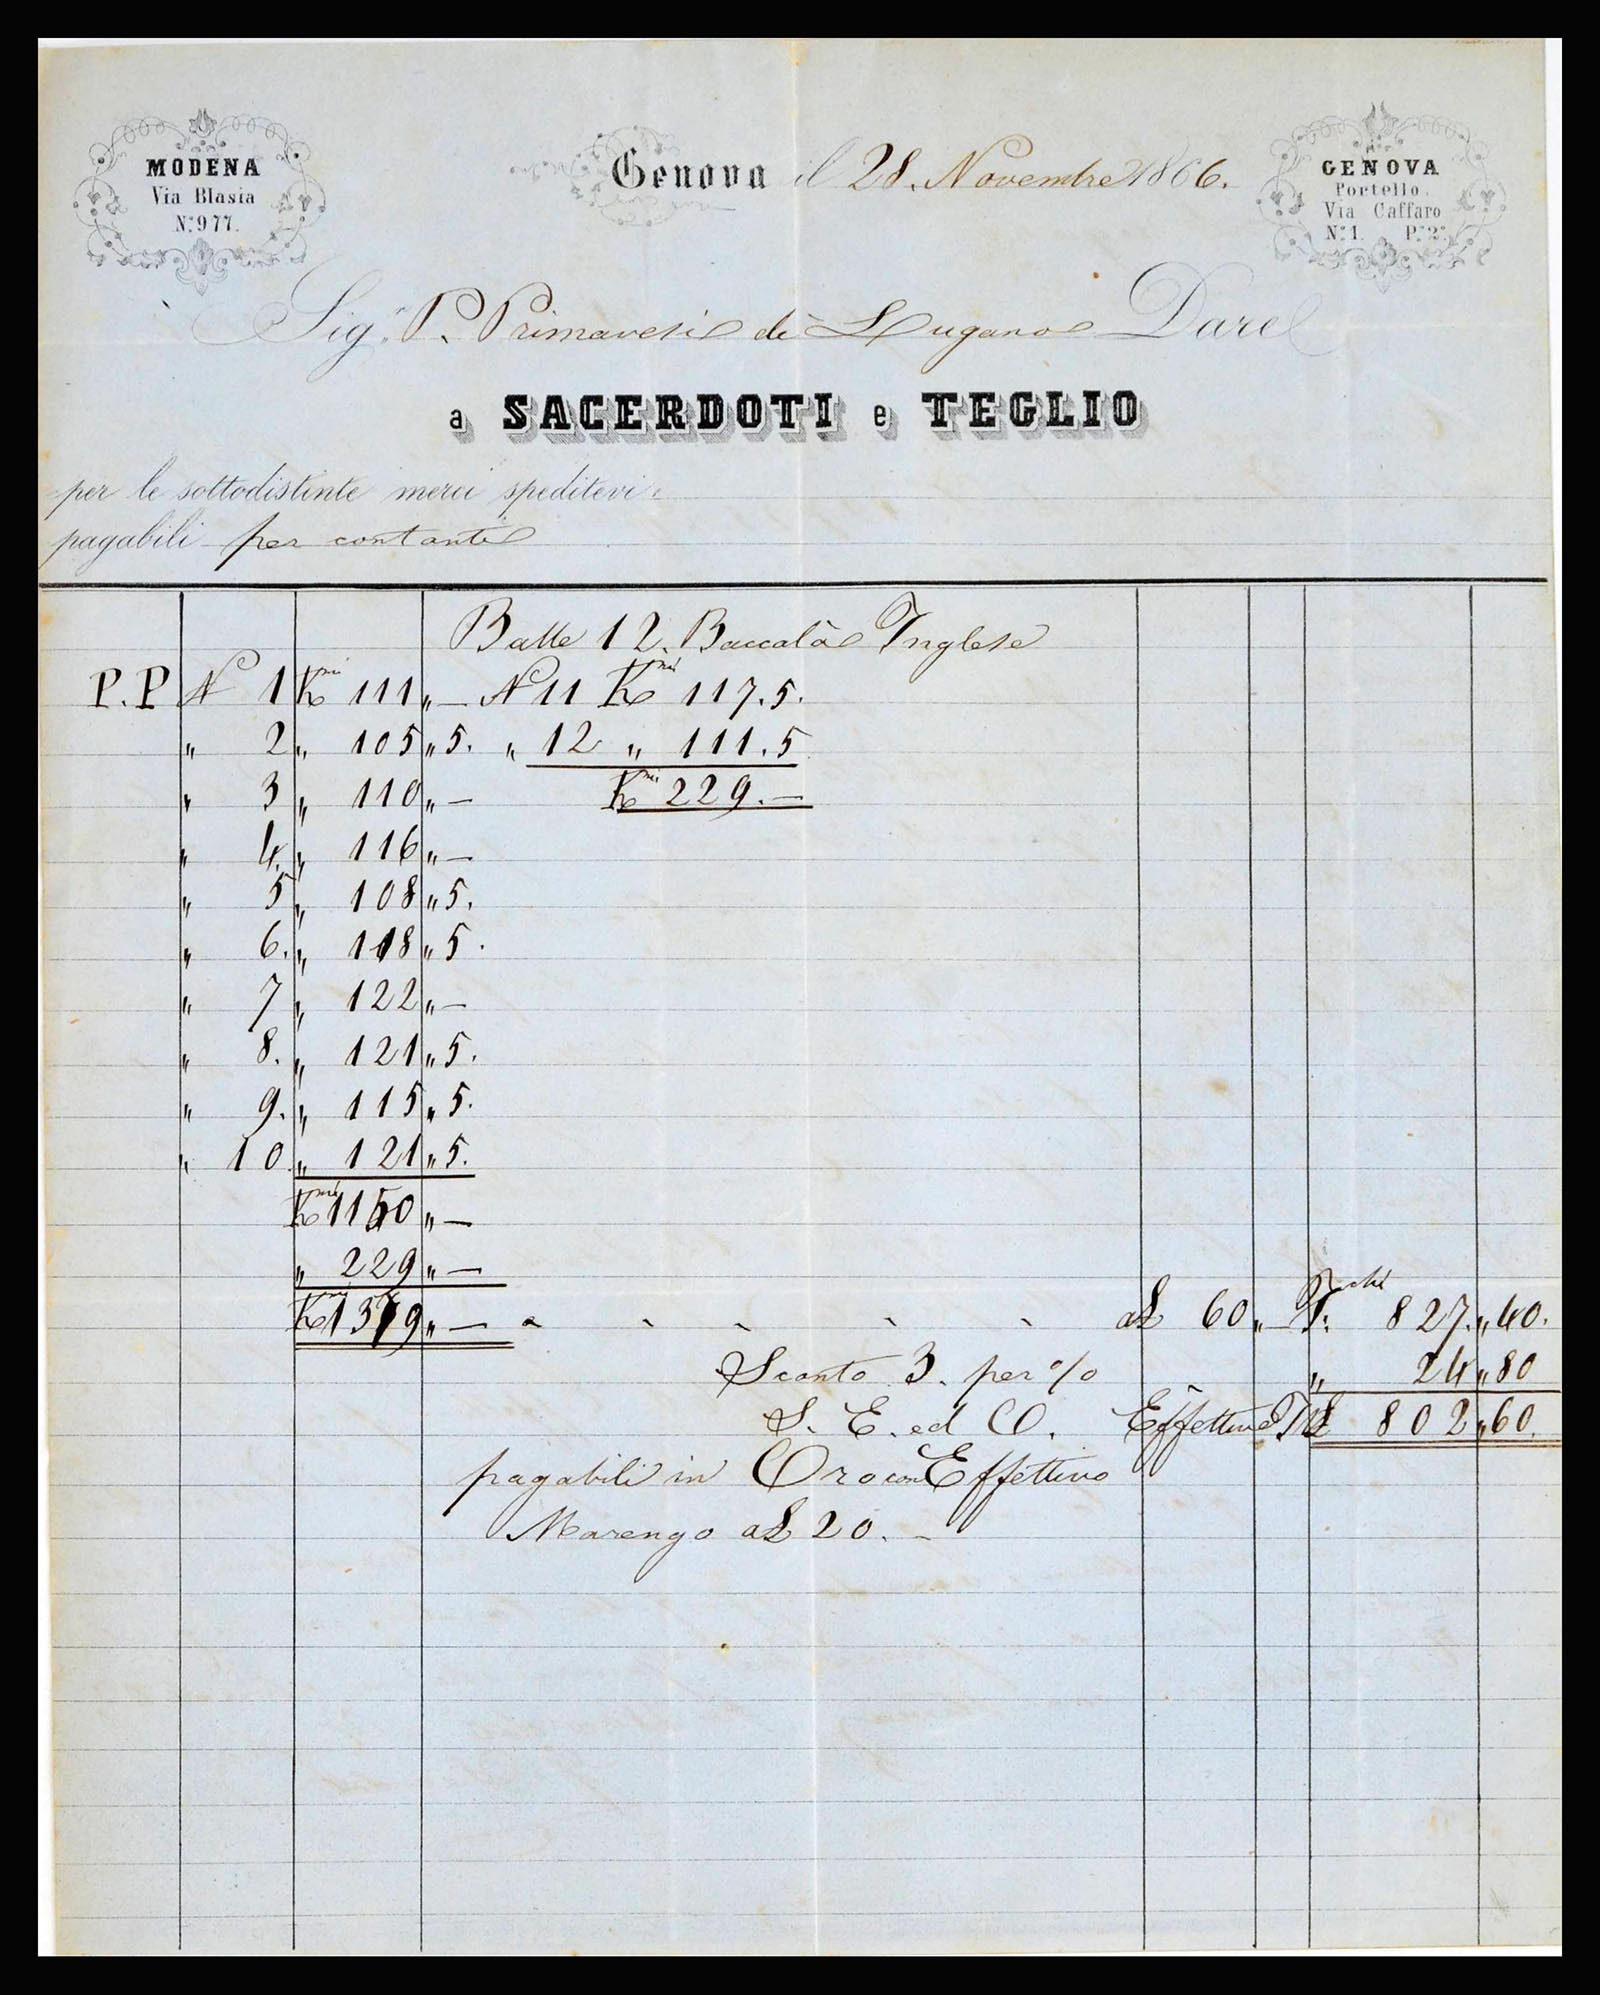 MODENA
Via Blasia
N.º 977.
Genova il 28. Novembre 1866.
GENOVA
Portello.
Via Caffaro
N.º 1. P.º 2.º
Sig.r P. Primavesi di Lugano Dare
a SACERDOTI e TEGLIO
per le sottodistinte merci speditevi
pagabili per contanti
Balle 12. Baccalà Inglese
P.P N 1 Kmi 111 „ — N 11 Kmi 117.5.
„ 2 „ 105 „ 5. „ 12 „ 111.5
„ 3 „ 110 „ — Kmi 229. —
„ 4. „ 116 „ —
„ 5 „ 108 „ 5.
„ 6. „ 118 „ 5.
„ 7 „ 122 „ —
„ 8. „ 121 „ 5.
„ 9. „ 115 „ 5.
„ 10 „ 121 „ 5.
Kmi 1150 „ —
„ 229 „ —
Kmi 1379 „ — a£ 60 „ — F.chi 827. „ 40.
Sconto 3. per % „ 24 „ 80
S. E. ed O. Effettive £ 802 „ 60.
pagabili in Oro con Effettivo
Marengo a£ 20. —